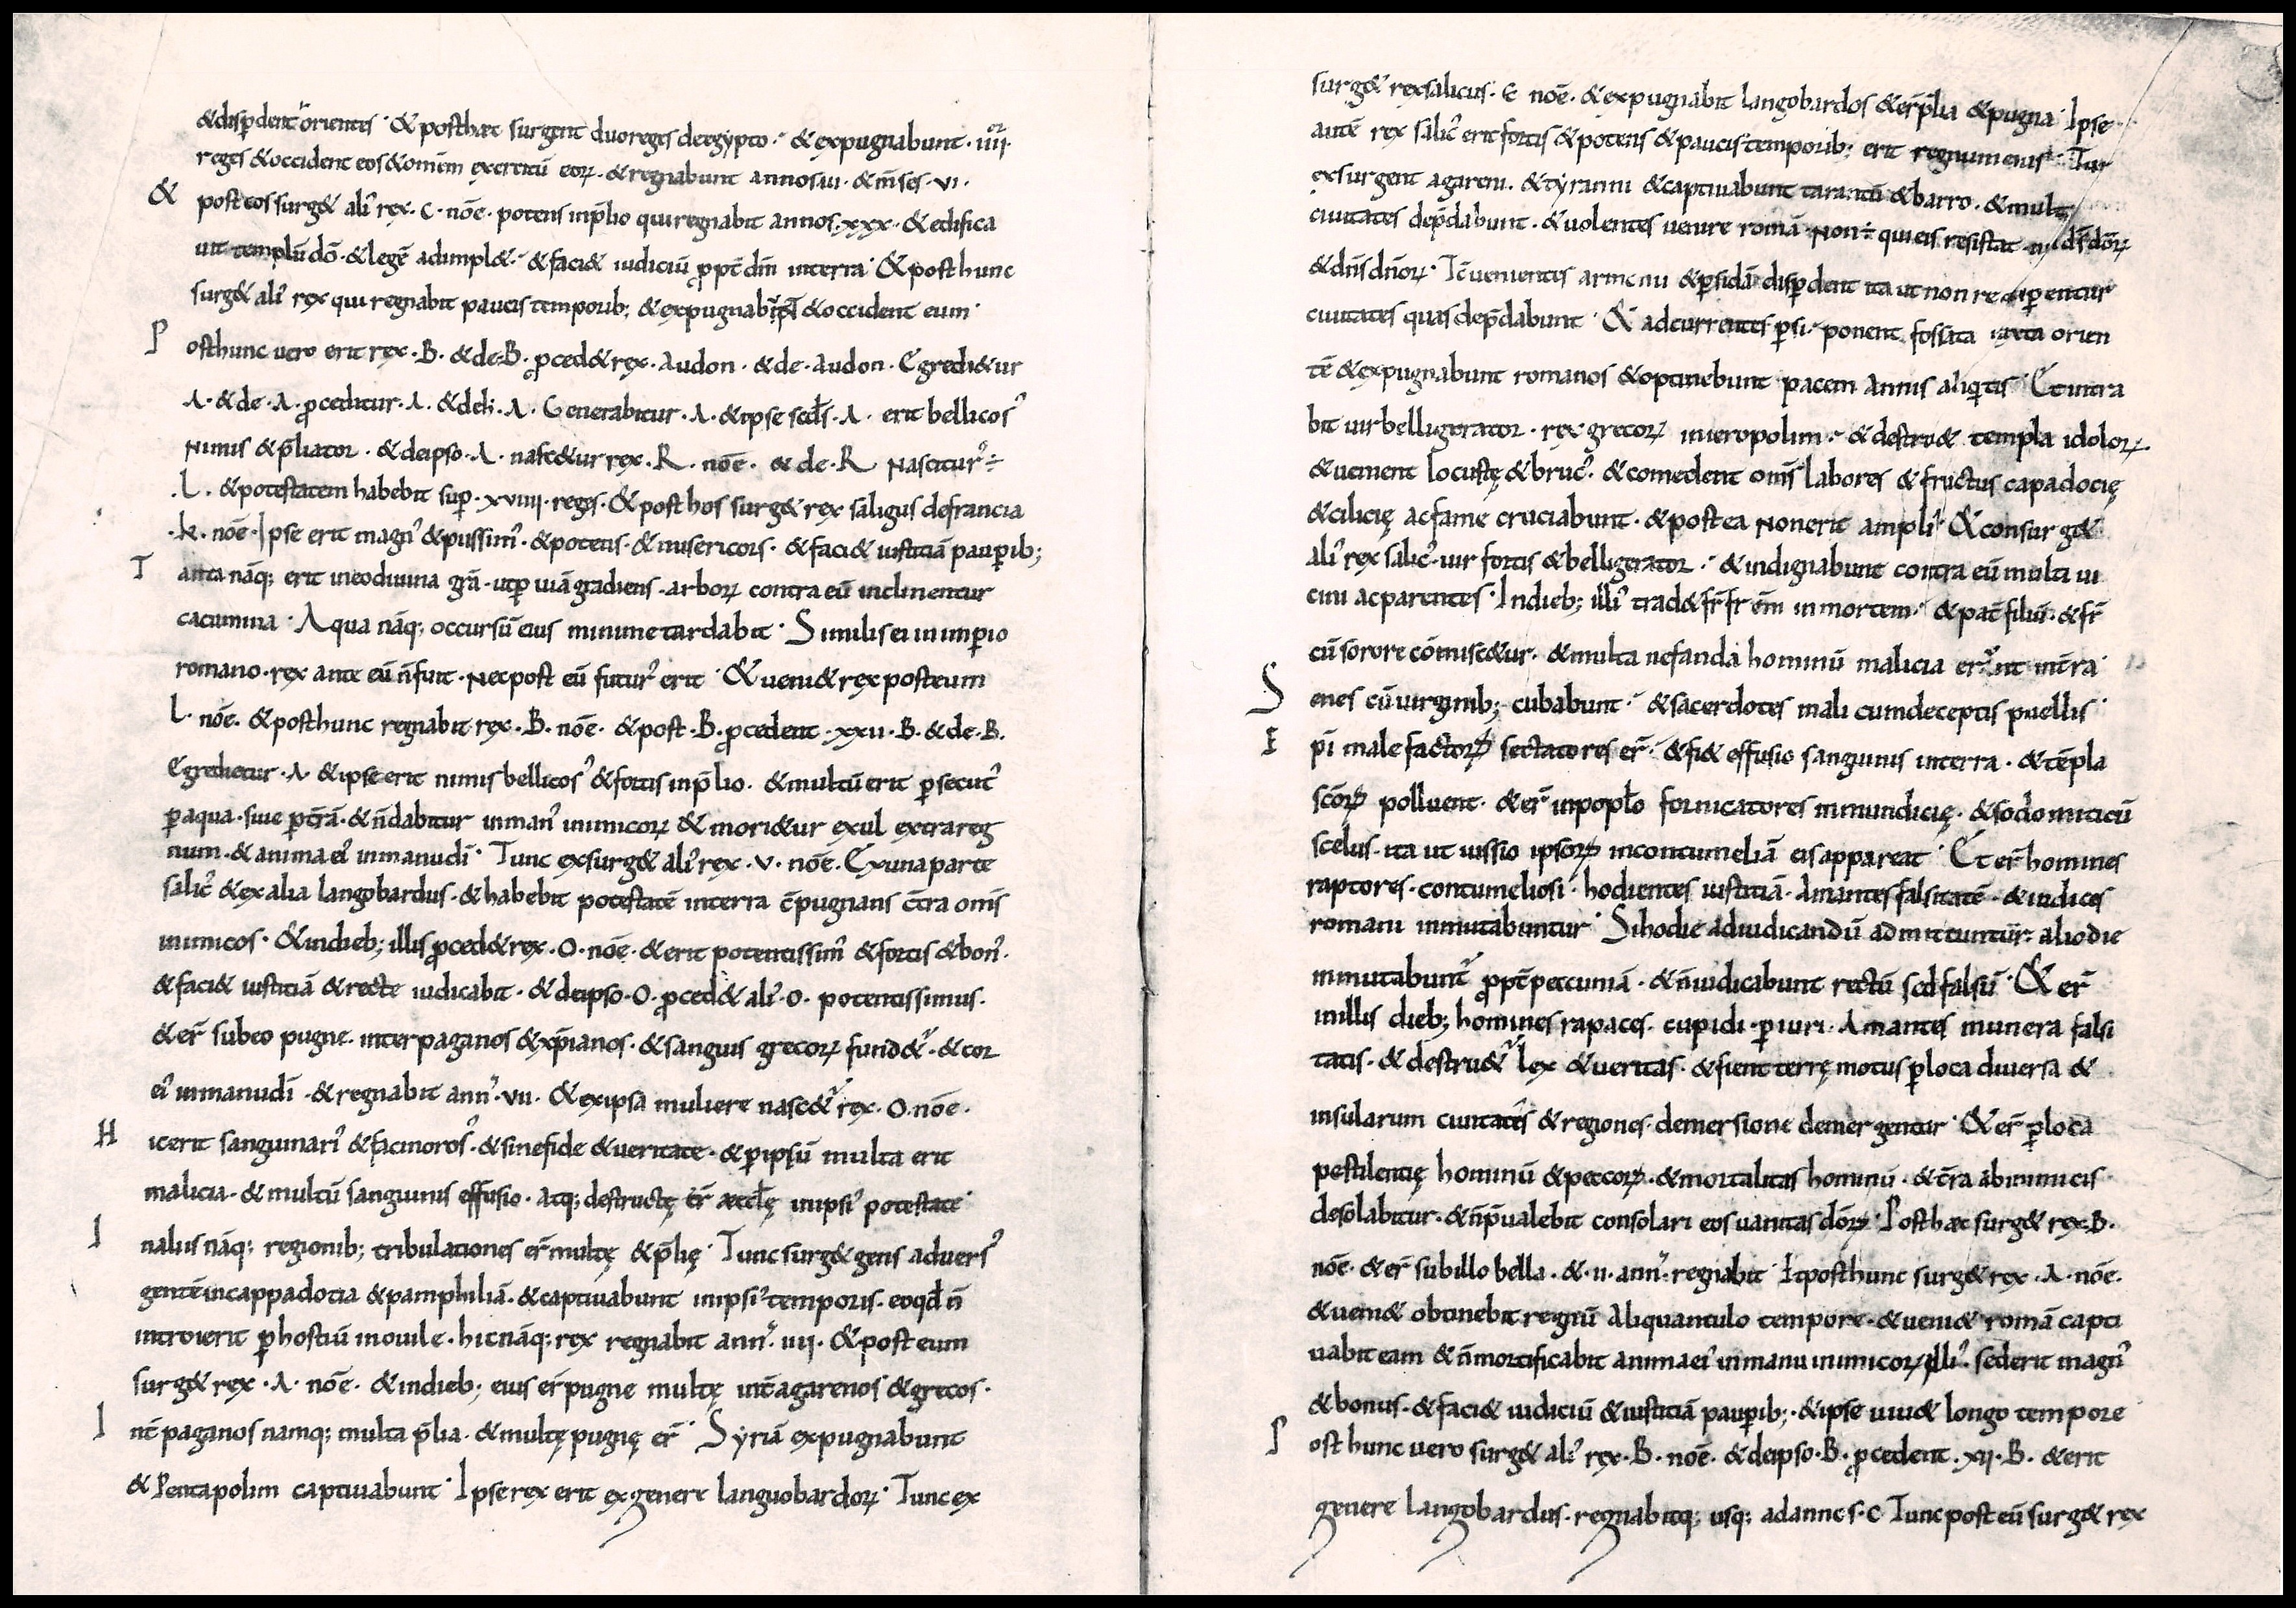 &disp̄dent orientē · & posthæc surgent duo reges de egypto · & expugnabunt · iiii ·
reges & occident eos & om̄em exercitū eoꝝ · & regnabunt annos iii · & m̄ses · vi ·
& post eos surg& ali᾿ rex · c · nōe · potens in p̄lio qui regnabit annos · xxx · & edifica
uit templū dō · & legē adimpl& · & faci& iudiciū ꝓpt̄ dn̄i in terra · & post hunc
surg& ali᾿ rex qui regnabit paucis temporib; & expugnab & occident eum ·
Post hunc uero erit rex · B · & de · B · ꝓced& rex · Audon · & de · Audon · Egredi&ur
A · & de · A · ꝓceditur · A · & de · A · Generabitur · A · & ipse scd̄s · A · erit bellicos᾿
Nimis & p̄liator · & de ipso · A · nasc&ur rex · R · nōe · & de · R Nascitur ÷
· L · & potestatem habebit suꝑ · xviiii · reges · & post hos surg& rex saligus de francia
· K · nōe · Ipse erit magn᾿ & piissim᾿ · & potens · & misericors · & faci& iustitiā pauꝑib;
Tanta nāq; erit in eo diuina gr̄a · ut ꝑ uiā gradiens · arboꝝ contra eū inclinentur
cacumina · Aqua nāq; occursū eius minime tardabit · Similis ei in imꝑio
romano · rex ante eū n̄ fuit · Nec post eū futur᾿ erit · & ueni& rex post eum
L · nōe · & post hunc regnabit rex · B · nōe · & post · B · ꝓcedent · xxii · B · & de · B ·
Egredietur · A · & ipse erit nimis bellicos᾿ & fortis in p̄lio · & multū erit ꝑsecut᾿
ꝑ aqua · siue ꝑ t̄rā · & n̄ dabitur in man᾿ inimicoꝝ & mori&ur exul extra reg
num · & anima ei᾿ in manu dī · Tunc exsurg& ali᾿ rex · V · nōe · Ex una parte
salic᾿ & ex alia langobardus · & habebit potestatē in terra c̄pugnans c̄tra om̄s
inimicos · & in dieb; illis ꝓced& rex · O · nōe · & erit potentissim᾿ & fortis & bon᾿ ·
& faci& iustitiā & recte iudicabit · & de ipso · O · ꝓced& ali᾿ · O · potentissimus ·
& er̄ sub eo pugne inter paganos & xp̄ianos · & sanguis grecoꝝ fund& · & cor
ei᾿ in manu dī · & regnabit ann᾿ · vii · & ex ipsa muliere nasc& rex · O · nōe ·
Hic erit sanguinari᾿ & facinoros᾿ · & sine fide & ueritate · & ꝑ ipsū multa erit
malicia · & multū sanguinis effusio · atq; destructę er̄ æccl̄ę in ipsi᾿ potestate ·
In alus nāq; regionib; tribulationes er̄ multę & p̄lię · Tunc surg& gens aduers᾿
gentē in cappadocia & pamphiliā · & captiuabunt in ipsi᾿ temporis · eo qd̄ n̄
introierit ꝑ hostiū in ouile · hic nāq; rex regnabit ann᾿ · iiij · & post eum
surg& rex · A · nōe · & in dieb; eius er̄ pugne multę int̄ agarenos & grecos ·
Int̄ paganos namq; multa p̄lia · & multę pugnę er̄ · Syriā expugnabunt
& Pentapolim captiuabunt · Ipse rex erit ex genere languobardoꝝ · Tunc ex
surg& rex salicus · E nōe · & expugnabit langobardos & er̄ p̄lia & pugna · Ipse
autē rex salic᾿ erit fortis & potens & paucis temporib; erit regnum eius · Tūc
exsurgent agareni · & tyranni & captiuabunt tarantū & barro · & mult
ciuitates dep̄dabunt · & uolentes uenire romā Non ÷ qui eis resistat ni ds̄ dōꝝ
& dn̄s dn̄oꝝ · Tc̄ uenientes armenii & ꝑsidā disꝑdent ita ut non recuꝑentur
ciuitates quas dep̄dabunt · & adcurrentes ꝑsi · ponent fossata iuxta orien
tē & expugnabunt romanos & optinebunt pacem Annis aliq̄tis · Et intra
bit uir belligerator · rex grecoꝝ in ieropolim · & destru& templa idoloꝝ ·
& uenient locustę & bruc᾿ · & comedent om̄s labores & fructus capadocię
& cilicię ac fame cruciabunt · & postea Non erit ampli᾿ · & consurg&
ali᾿ rex salic᾿ · uir fortis & belligerator · & indignabunt contra eū multi ui
cini ac parentes · In dieb; illi᾿ trad& fr̄ fr̄em in mortem · & pat̄ filiū · & fr̄
cū sorore cōmisc&ur · & multa nefanda hominū malicia erunt in t̄ra ·
Senes cū uirginib; cubabunt · & sacerdotes mali cum deceptis puellis ·
Ep̄i malefactoꝝ sectatores er̄ · & fi& effusio sanguinis in terra · & tēpla
sc̄oꝝ polluent · & er̄ in popl̄o fornicatores inmundicię · & sodomiticū
scelus · ita ut uissio ipsoꝝ in contumeliā eis appareat · Et er̄ homines
raptores · contumeliosi · hodientes iustitiā · Amantes falsitatē · & iudices
romani inmutabuntur · Si hodie ad iudicandū admittuntur · alio die
inmutabunt ꝓpt̄ peccuniā · & n̄ iudicabunt rectū sed falsū · & er̄
in illis dieb; homines rapaces · cupidi · ꝑiuri · Amantes munera falsi
tatis · & destru& lex & ueritas · & fient terrę motus ꝑ loca diuersa &
insularum ciuitates & regiones · demersione demergentur · & er̄ ꝑ loca
pestilentię hominū & peccoꝝ · & mortalitas hominū · & t̄ra ab inimicis
desolabitur · & n̄ p̄ualebit consolari eos uanitas dōꝝ · Post hæc surg& rex · B ·
nōe · & er̄ sub illo bella · & · ii · ann᾿ · regnabit · Et post hunc surg& rex · A · nōe ·
& ueni& obtinebit regnū Aliquantulo tempore · & ueni& romā capti
uabit eam & n̄ mortificabit anima ei᾿ in manu inimicoꝝ illi᾿ · sed erit magn᾿
& bonus · & faci& iudiciū & iustitiā pauꝑib; · & ipse uiu& longo tempore
Post hunc uero surg& ali᾿ rex · B · nōe · & de ipso · B · ꝓcedent · xij · B · & erit
genere langobardus · regnabitq; usq; ad annos · C Tunc post eū surg& rex